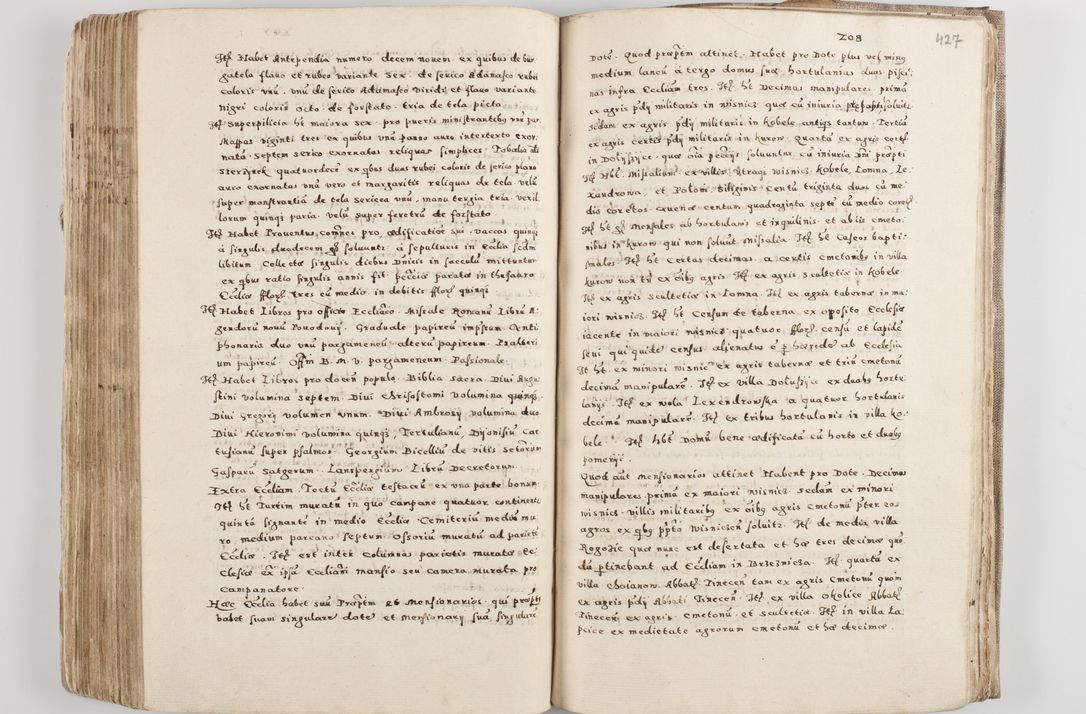 Itẽ Habet Antependia numero decem nouem ex quibus de bur
gatela flauo et rubeo variante sex. de serico Adamasco rubei
coloris vnũ. vnũ de serico Adamasco viridi et flauo variante
nigri coloris octo de forstato. tria de tela picta
Itẽ Superpilicia ht maiora sex. pro pueris ministrantibꝯ vnũ par
Mappas viginti tres ex quibus vna panno auro intertexto exor
nata. septem serico exornatas reliquas simplices. Tobalia als
sterzynek quatuordecẽ ex qbus duas rubei coloris de serico plano
auro exornatas vnã vero et margaritis reliquas de tela. velũ
super monstrantiã de tela sericea vnũ, manutergia tria. vexil
lorum quinqȝ paria. velũ super feretrũ de forstato
Itẽ Habet Prouentus omnes pro ædificatiõe sui. vaccas quinqȝ
à singulis duodecem gȝ soluunt. à sepulturis in Ecclia scdm
libitum. Collecta singulis diebus Dnicis in sacculũ mittuntur
ex qbus ratio singulis annis fit. pecciæ paratæ in thesauro
Eccliæ fflorȝ tres cũ medio. in debitis fflorȝ quinqȝ
Itẽ Habet Libros pro officio Eccliaco. Missale Romanũ Librũ A
gendorũ nouũ Pouodouij. Graduale papireũ impssum Anti
phonaria duo vnũ pargamentũ alterũ papireum. Psalteri
um papireũ. Offm B. M. v. pargameneum. Passionale.
Itẽ Habet Libros pro docen populo. Biblia Sacra. Diui Augu
stini volumina septem. Diui Chrisostomi volumina quinqȝ.
Diui Gregorij volumen vnum. Diui Ambrosij volumina duo
Diui Hieronimi volumina quinqȝ, Tertulianũ, Dijonisiũ Car
tusianũ super psalmos. Georgium Vicelliũ de vitis sctorũ
Gasparũ Satgerum. Lanspergium Librũ Decretorum.
Extra Eccliam. Tectũ Eccliæ testaceũ ex vna parte bonum
Itẽ ht Turrim muratã in quo campanæ quatuor continentur
quinta signante in medio Eccliæ. Cemiteriũ mediũ mu
ro. medium parcano septum. Ossoriũ muratũ ad parietẽ
Eccliæ. Itẽ est inter columnas parietis muratæ Ec
clesiæ ex ipsa Eccliam mansio seu camera murata pro
campanatore.
Hæc Ecclia habet suũ Præptm et Mansionarios. qui præpts
habet suam singulare dotẽ et Mansionarij suã singularẽ
208
427
Dotẽ. Quod præptm attinet. Habet pro Dote plus vel minꝯ
medium laneũ à tergo domus suæ. hortulanias duas pisci
nas infra Eccliam tres. Itẽ ht Decimas manipulares. primã
ex agris pdij militaris in Wisnicz. quæ cũ iniuria soluitr
scdam ex agris pdij militaris in Kobele antiqs tantum. Tertiã
ex agris certis pdij militaris in Kurow. Quartã ex agris certȝ
in Doluszyce. quæ oĩa pecciis soluuntur cũ iniuria præpti
Itẽ Hbt. Missalium ex villis Utraqȝ Wisnicz. Kobele, Lomna, Le
xandrowa, et Polom. Siliginis Centũ triginta duos cũ me
dio coretos. Auenæ centum quadraginta septẽ cũ medio coretȝ
Itẽ ht gȝ Mensales ab hortulanis et inquilinis et ab iis cmeto
nibus in Kurow qui non soluũt missalia. Itẽ ht Caseos bapti
smales. Itẽ ht Certas decimas. à certis cmetonibꝯ in villa
Kurow non tñ ex oĩbꝯ agris. Itẽ ex agris scultetiæ in Kobele.
Itẽ ex agris scultetiæ in Lomna. Itẽ ex agris tabernæ in ma
iori Wisnicz. Itẽ ht Censum de taberna ex oposito Ecclesiæ
iacente in maiori Wisnicz quatuor fflorȝ censũ et lapidẽ
seui qui quidẽ census alienatus ẽ p hæredẽ ab Ecclesia
It ht ex minori Wisnicz ex agris tabernæ et triũ cmetonũ
decimã manipularẽ. Itẽ ex villa Doluszycze ex duabꝯ hortu
lanijs. Itẽ ex Wola Lexendrowska a quatuor hortulanis
decimã manipularẽ. Itẽ ex tribus hortulanis in villa Ko
bele. Itẽ hbt Domũ bene ædificatã cũ horto et duabꝯ
pomerijs.
Quod aũt Mansionarios attinet. Habent pro Dote. Decimas
manipulares primã ex maiori Wisnicz. scdam ex minori
Wisnicz. villis militaribꝯ ex oĩbꝯ agris cmetonũ pter eos
agros ex qbꝯ ppto Wisnicen soluitr. Itẽ de media villa
Rogozie quæ nunc est desertata et hæ tres decimæ quõ
dã ptinebant ad Eccliam in Brzeznicza. Itẽ quartã ex
villa Choianow. Abbatȝ Tinecen tam ex agris cmetonũ quam
ex agris pdij Abbati Tinecen. Itẽ ex villa Okolice Abbatȝ
Tinecen ex agris cmetonũ et scultetiæ. Itẽ in villa La
pcice ex medietate agrorum cmetonũ et hæ decimæ.